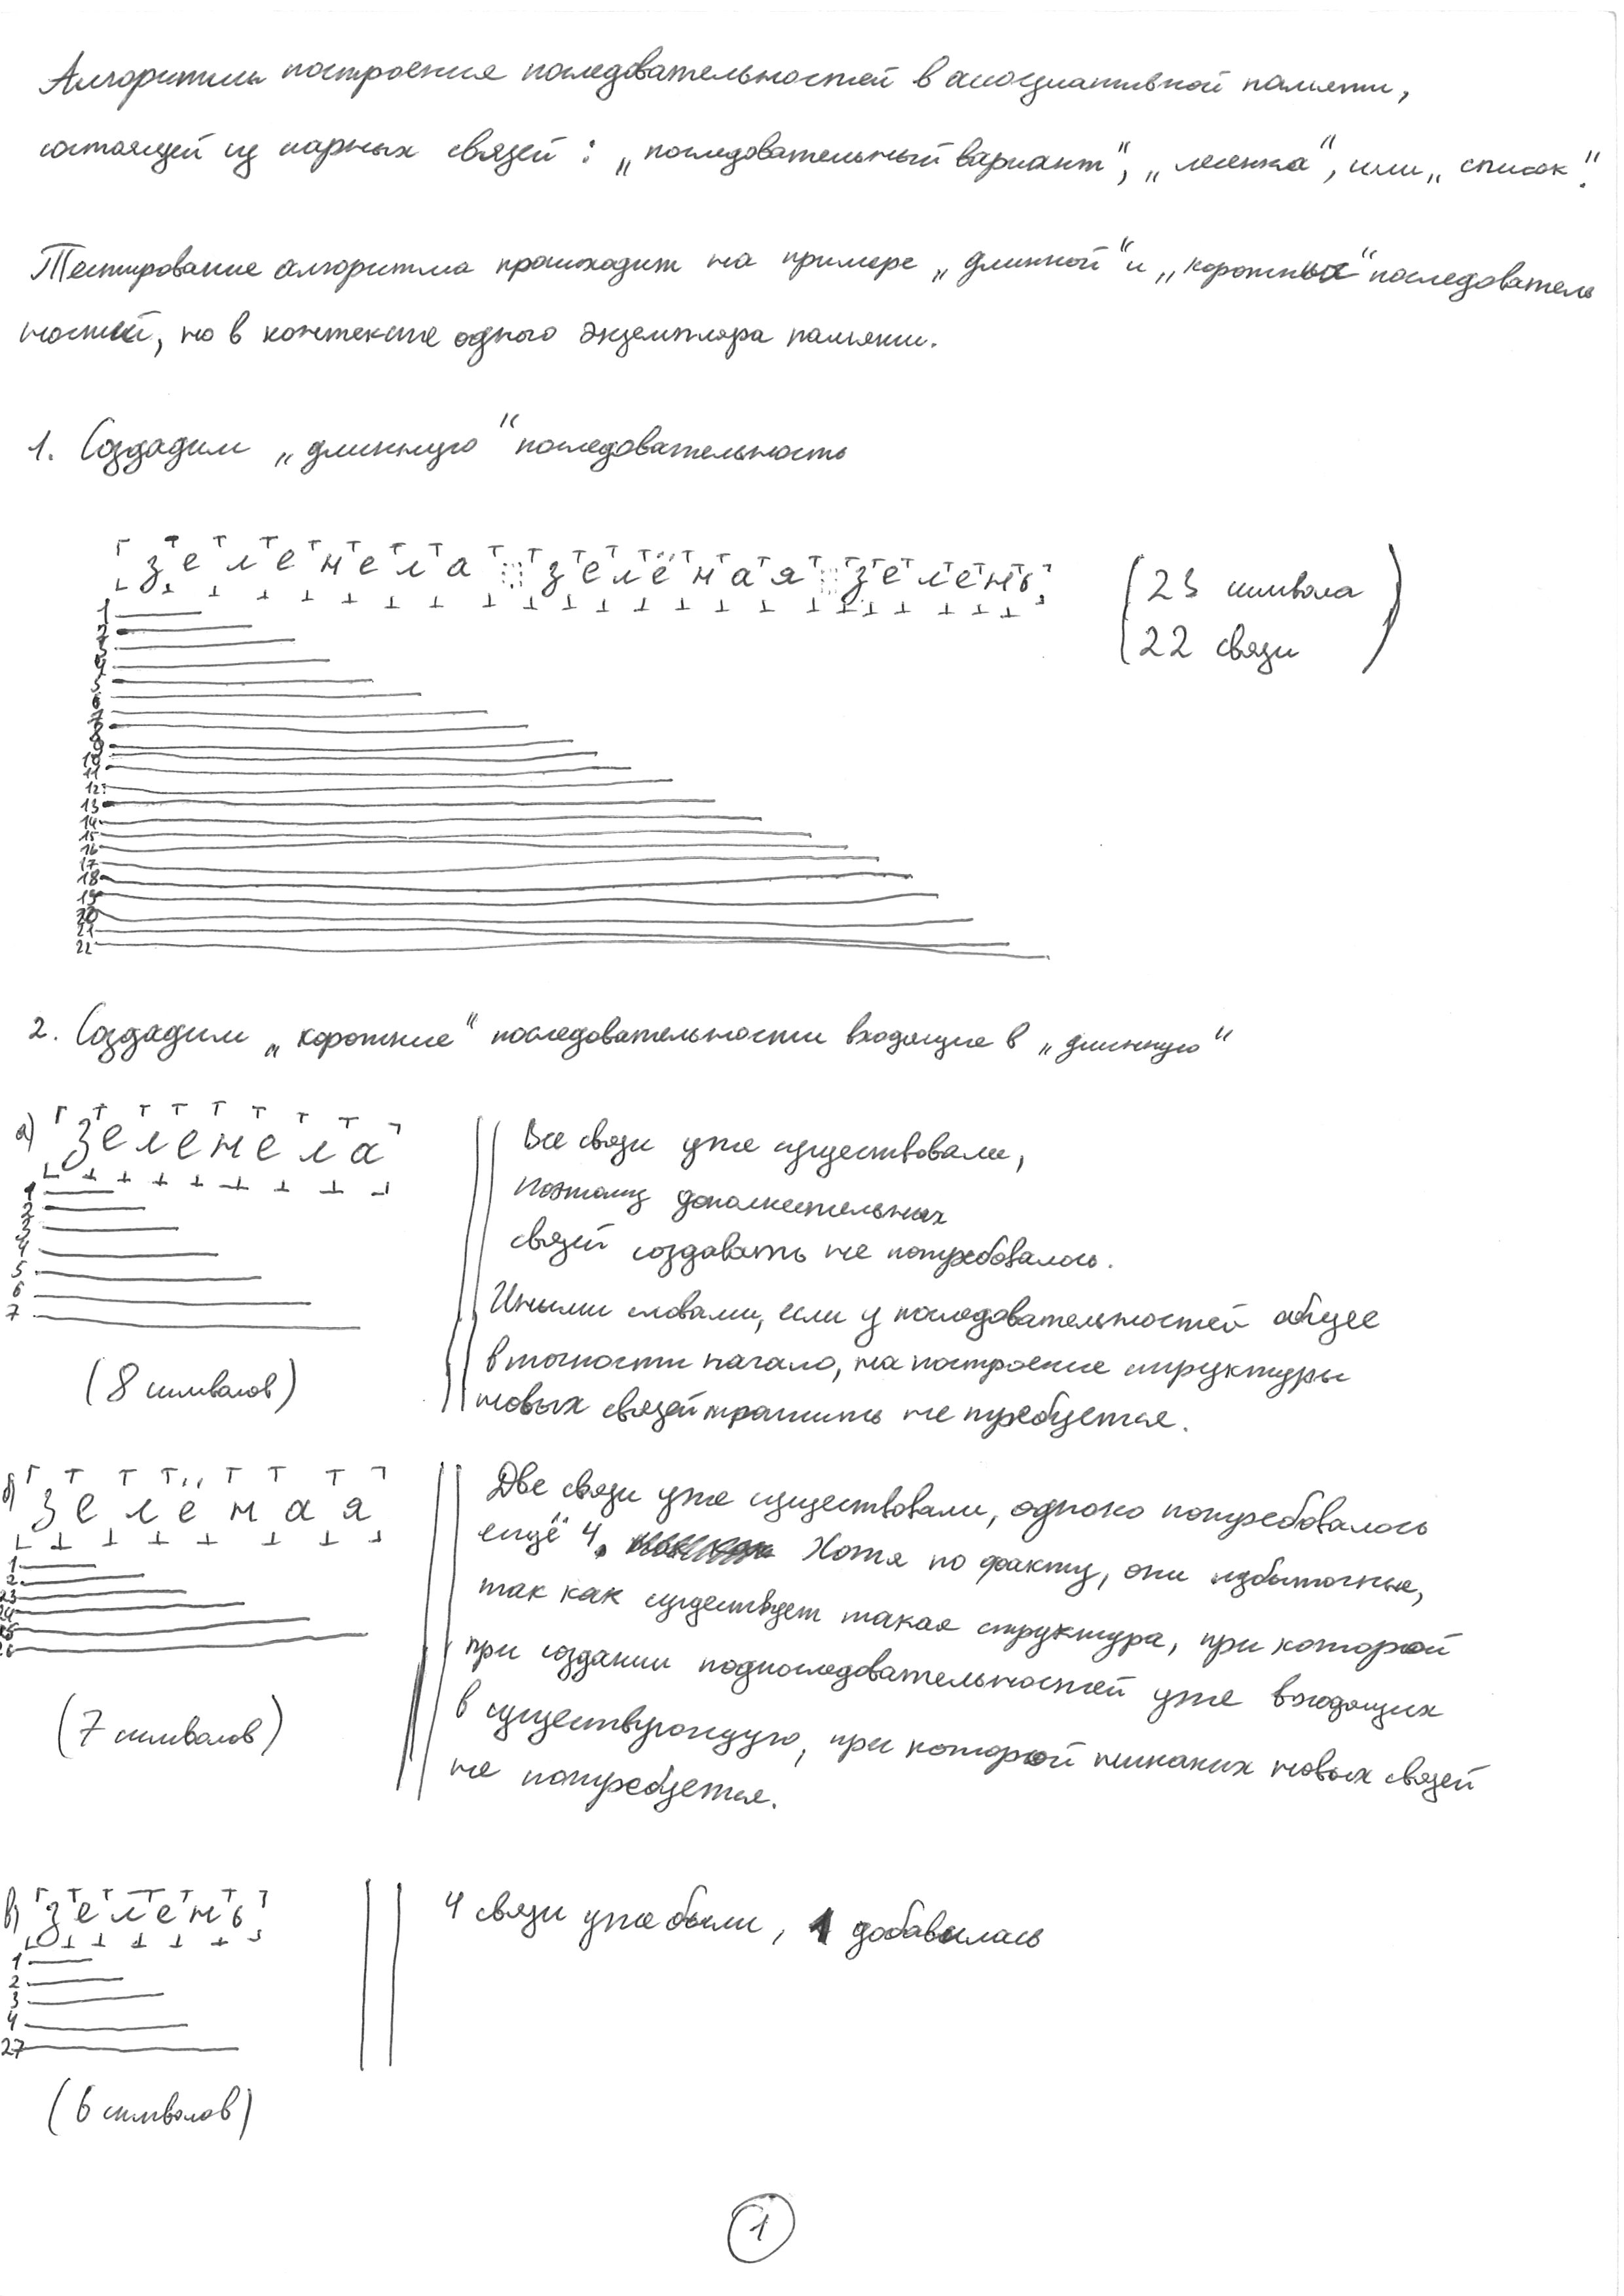 Алгоритмы построения последовательностей в ассоциативной памяти,
состоящей из парных связей: „последовательный вариант“, „лесенка“, или „список“.
Тестирование алгоритма происходит на примере „длинной“ и „коротких“ последователь
ностей, но в контексте одного экземпляра памяти.
1. Создадим „длинную“ последовательность
зеленела зелёная зелень
(23 символа
(22 связи)
1
2
3
4
5
6
7
8
9
10
11
12
13
14
15
16
17
18
19
20
21
22
2. Создадим „короткие“ последовательности входящие в „длинную“
а) зеленела
1
2
3
4
5
6
7
(8 символов)
Все связи уже существовали,
поэтому дополнительных
связей создавать не потребовалось.
Иными словами, если у последовательностей общее
в точности начало, на построение структуры
новых связей тратить не требуется.
б) зелёная
1
2
23
24
25
26
(7 символов)
Две связи уже существовали, однако потребовалось
ещё 4. Хотя по факту, они избыточные,
так как существует такая структура, при которой
при создании подпоследовательностей уже входящих
в существующую, при которой никаких новых связей
не потребуется.
в) зелень
1
2
3
4
27
(6 символов)
4 связи уже были, 1 добавилась
1